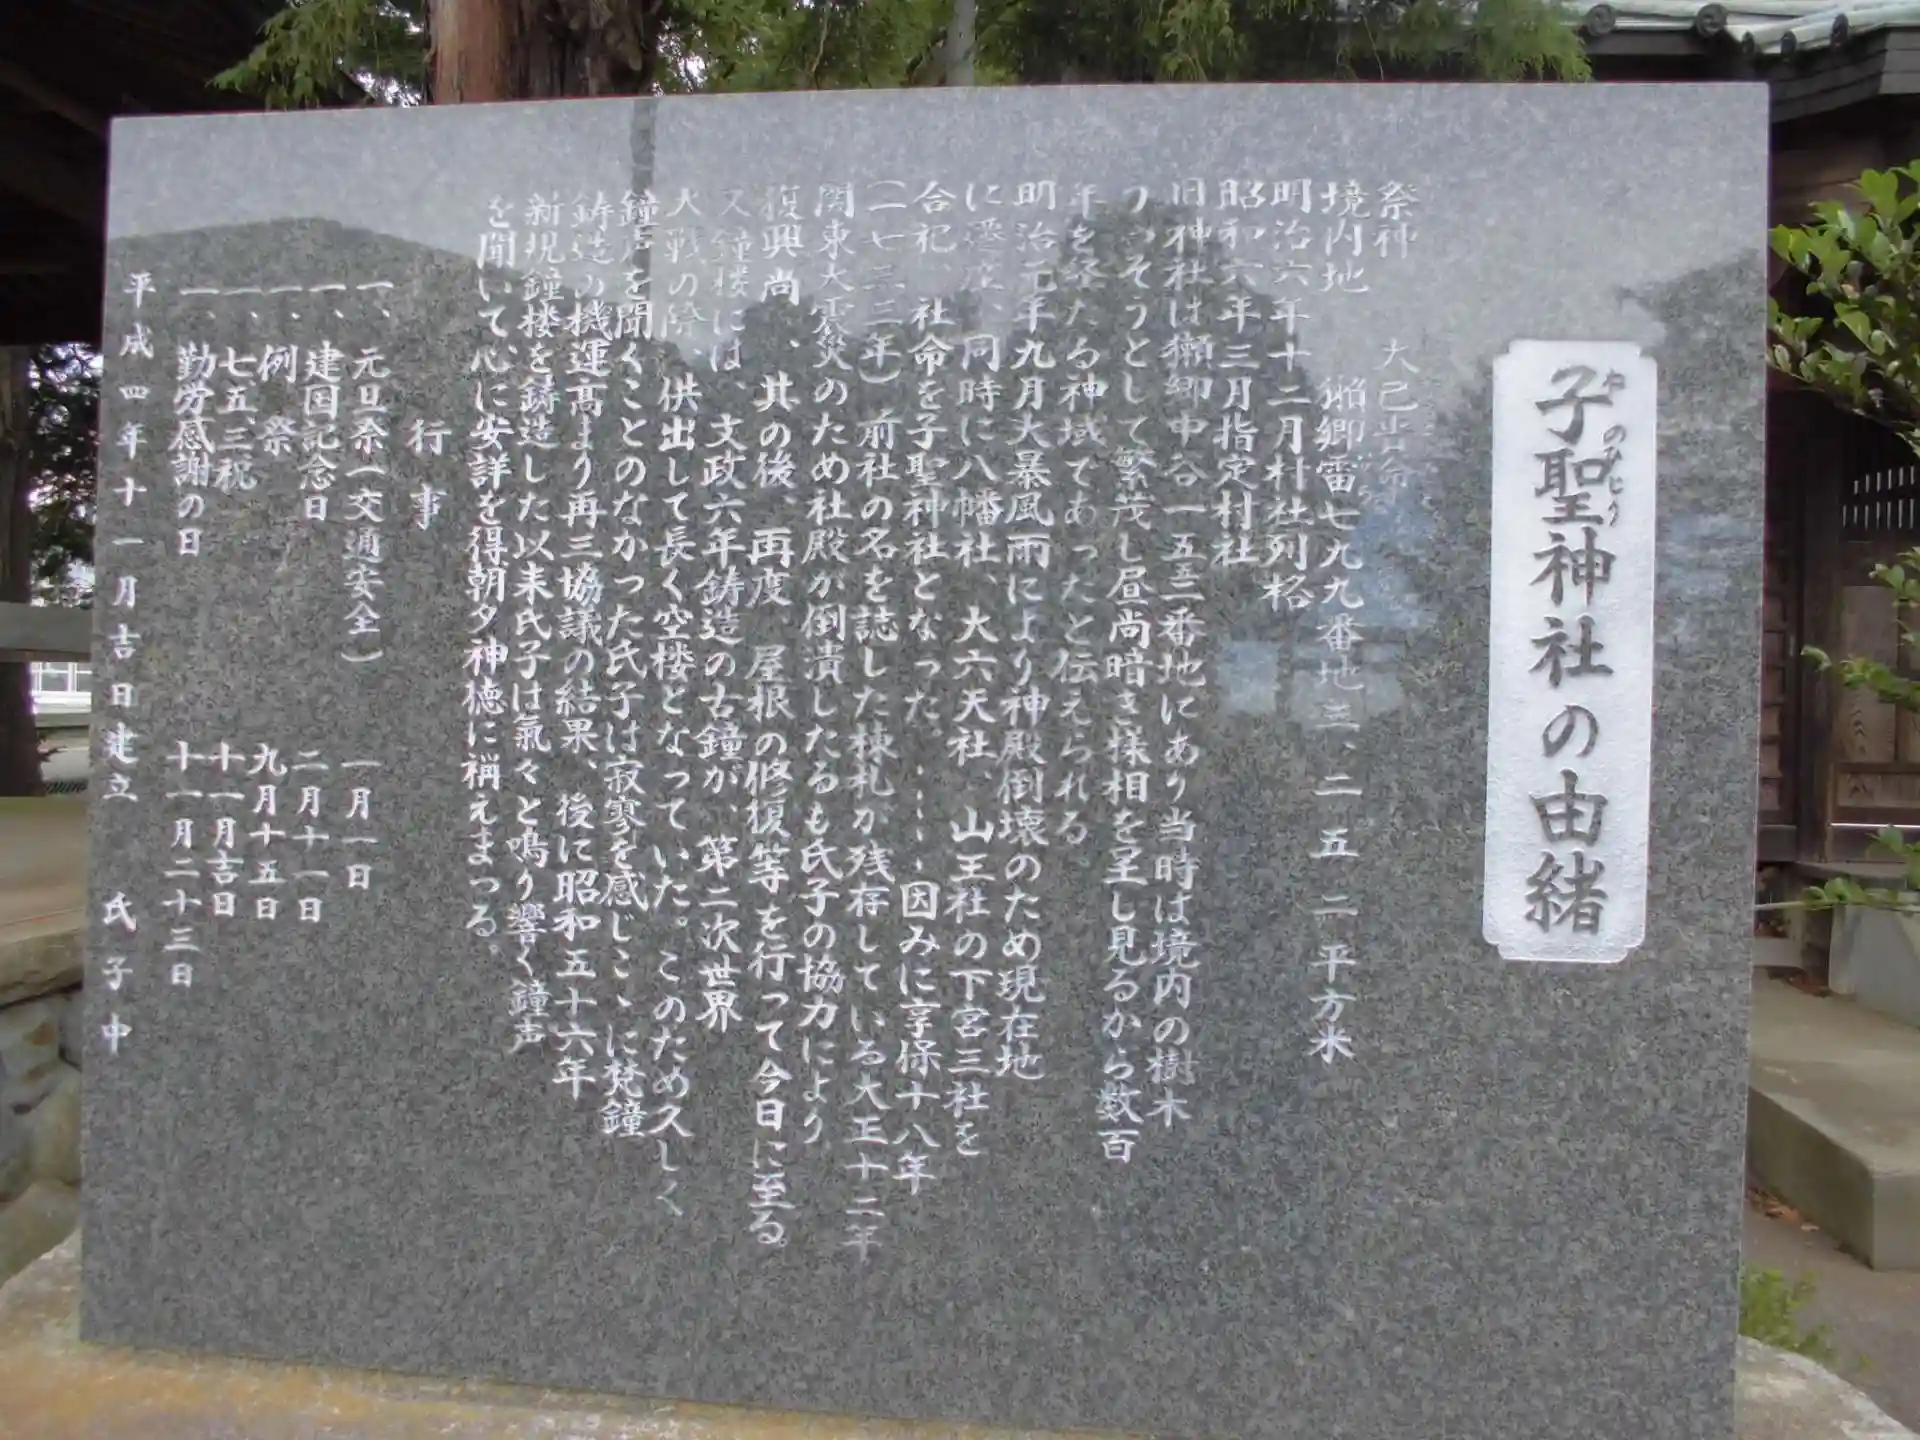 子聖神社の由緒
ねのひじり
祭神　大己貴命
境内地　獺郷雷七九九番地三、二五二平方米
明治六年十二月村社列格
昭和六年三月指定村社
旧神社は獺郷中谷一五五一番地にあり当時は境内の樹木
うっそうとして繁茂し昼尚暗き様相を呈し見るから数百
年を経たる神域であったと伝えられる。
明治元年九月大暴風雨により神殿倒壊のため現在地
に遷座、同時に八幡社、大六天社、山王社の下宮三社を
合祀、社命を子聖神社となった。……因みに享保十八年
（一七三三年）前社の名を誌した棟札が残存している大正十二年
関東大震災のため社殿が倒潰したるも氏子の協力により
復興尚、其の後、再度、屋根の修復等を行って今日に至る。
又鐘楼には、文政六年鋳造の古鐘が、第二次世界
大戦の際、供出して長く空楼となっていた。このため久しく
鐘声を聞くことのなかった氏子は寂寥を感じこゝに梵鐘
鋳造の機運高より再三協議の結果、後に昭和五十六年
新規鐘楼を鋳造した以来氏子は氣々と鳴り響く鐘声
を聞いて心に安詳を得朝夕神徳に稱えまつる。
行事
一、元旦祭（交通安全）　一月一日
一、建国記念日　二月十一日
一、例祭　九月十五日
一、七五、三祝　十一月吉日
一、勤労感謝の日　十一月二十三日
平成四年十一月吉日建立　氏子中